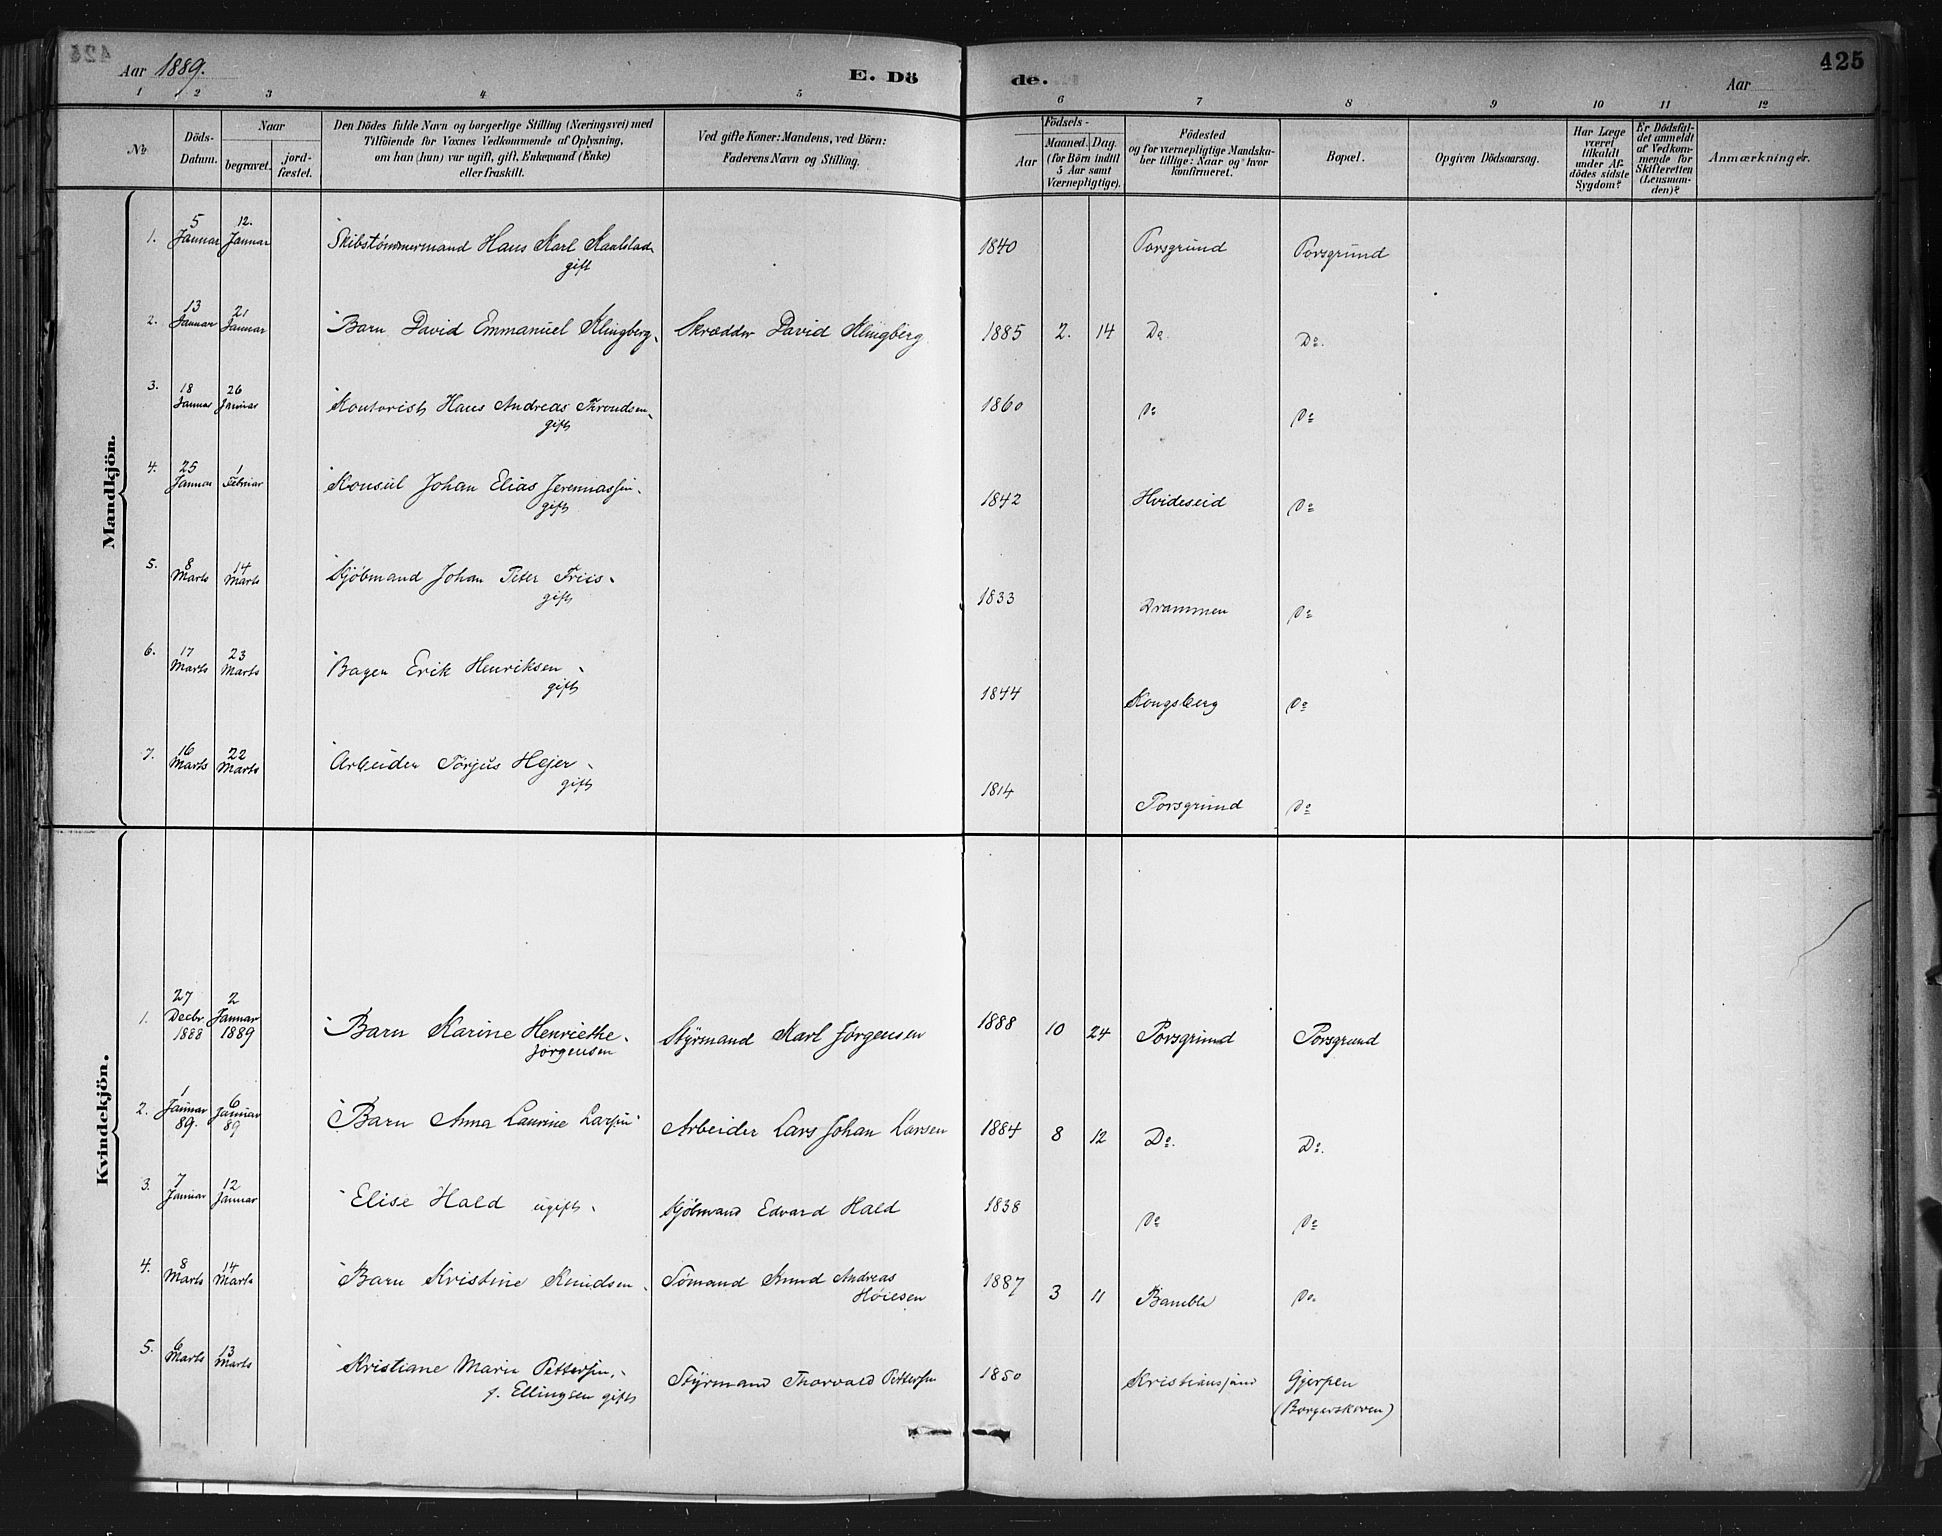 424
Aar 1889.
E. Döde.
425
Aar
1 2 3 4 5 6 7 8 9 10 11 12
№
Döds-Datum.
Naar
begravet.
jord-fæstet.
Den Dödes fulde Navn og borgerlige Stilling (Næringsvei) med
Tilföiende for Voxnes Vedkommende af Oplysning,
om han (hun) var ugift, gift, Enkemand (Enke)
eller fraskilt.
Ved gifte Koner: Mandens, ved Börn:
Faderens Navn og Stilling.
Födsels-
Aar
Maaned. Dag.
(for Börn indtil
5 Aar samt
Værnepligtige).
Födested
og for værnepligtige Mandska-
ber tillige: Naar og hvor
konfirmeret.
Bopæl.
Opgiven Dödsaarsag.
Har Læge
været
tilkaldt
under Af-
dödes sidste
Sygdom?
Er Dödsfal-
det anmeldt
af Vedkom-
mende for
Skifteretten
(Lensman-
den)?
Anmærkninger.
Mandkjön.
1. 5 Januar 12. Januar Skibstömmermand Hans Karl Kaalstad gift 1840 Porsgrund Porsgrund
2. 13 Januar 21 Januar Barn David Emmanuel Klingberg Skrædder David Klingberg 1885 2. 14 Do. Do.
3. 18 Januar 26 Januar Kontorist Hans Andreas Throndsen gift 1860 Do Do
4. 25 Januar 1 Februar Konsul Johan Elias Jeremiassen gift 1842 Hvideseid Do
5. 8 Marts 14 Marts Kjöbmand Johan Peter Friis gift 1833 Drammen Do
6. 17 Marts 23 Marts Bager Erik Henriksen gift 1844 Kongsberg Do
7. 16 Marts 22 Marts Arbeider Törjus Hejer gift 1814 Porsgrund Do
Kvindekjön.
1. 27 Decbr 1888 2 Januar 1889 Barn Karine Henriethe Jörgensen Styrmand Karl Jörgensen 1888 10 24 Porsgrund Porsgrund
2. 1 Januar 89. 6 Januar 89 Barn Anna Laurine Larsen Arbeider Lars Johan Larsen 1884 8 12 Do. Do.
3. 7 Januar 12 Januar Elise Hald ugift Kjöbmand Edvard Hald 1838 Do Do
4. 8 Marts 14 Marts Barn Kristine Knudsen Sömand Knud Andreas Höiesen 1887 3 11 Bamble Do
5. 6 Marts 13 Marts Kristiane Marie Pettersen, f. Ellingsen gift Styrmand Thorvald Pettersen 1850 Kristianssand Gjerpen (Borgerskoven)